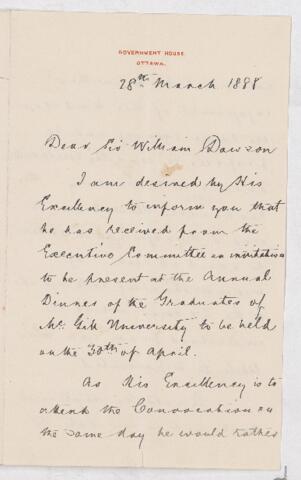 GOVERNMENT HOUSE.
OTTAWA.
28th March 1888
Dear Sir William Dawson
I am desired by His
Excellency to inform you that
he has received from the
Executive Committee an invitation
to be present at the Annual
Dinner of the Graduates of
McGill University to be held
on the 30th of April.
As His Excellency is to
attend the Convocation on
the same day he would rather